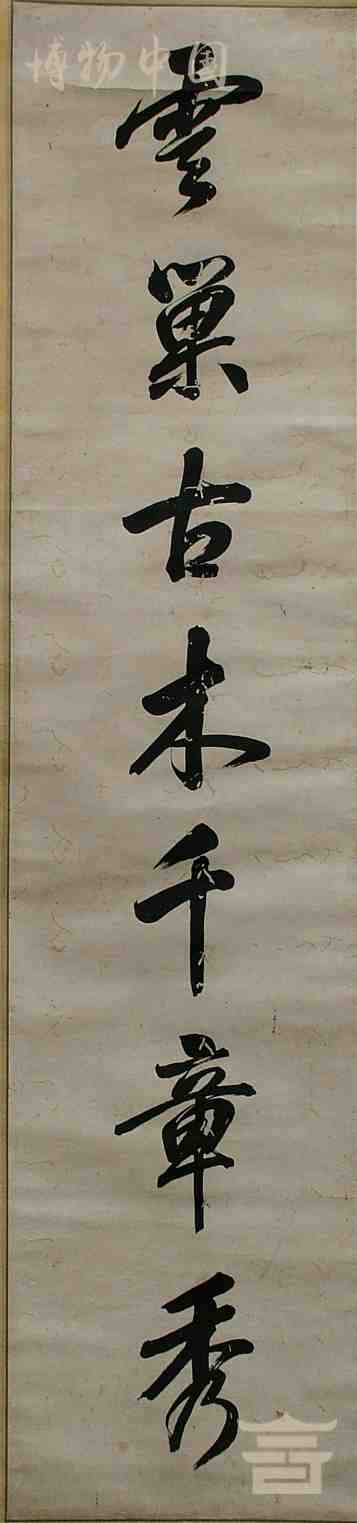 博物中国
雲巢古木千章秀